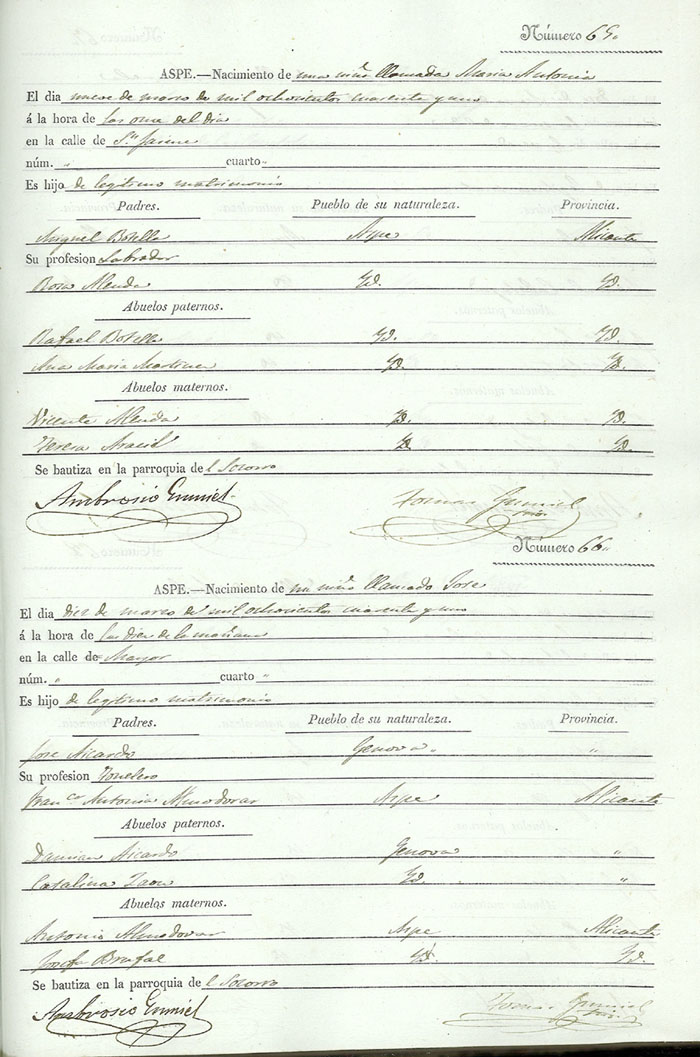 Número 65.
ASPE.—Nacimiento de una niña llamada Maria Antonia
El dia nueve de marzo de mil ochocientos cuarenta y uno
á la hora de las once del dia
en la calle de Sn. Jaime
núm. " cuarto "
Es hijo de legitimo matrimonio
Padres. Pueblo de su naturaleza. Provincia.
Miguel Botella Aspe Alicante
Su profesion Labrador
Rosa Yd. Yd.
Abuelos paternos.
Rafael Botella Yd. Yd.
Ana Maria Martinez Yd. Yd.
Abuelos maternos.
Vicente Yd. Yd.
Teresa Aracil Yd. Yd.
Se bautiza en la parroquia de l Socorro
Ambrosio Tomas
Número 66.
ASPE.—Nacimiento de un niño llamado Jose
El dia diez de marzo de mil ochocientos cuarenta y uno
á la hora de las diez de la mañana
en la calle de Mayor
núm. " cuarto "
Es hijo de legitimo matrimonio
Padres. Pueblo de su naturaleza. Provincia.
Jose Ricardo Genova "
Su profesion Tonelero
Franca. Antonia Almodovar Aspe Alicante
Abuelos paternos.
Damian Ricardo Genova "
Catalina Yd. "
Abuelos maternos.
Antonio Almodovar Aspe Alicante
Josefa Yd. Yd.
Se bautiza en la parroquia de l Socorro
Ambrosio Tomas